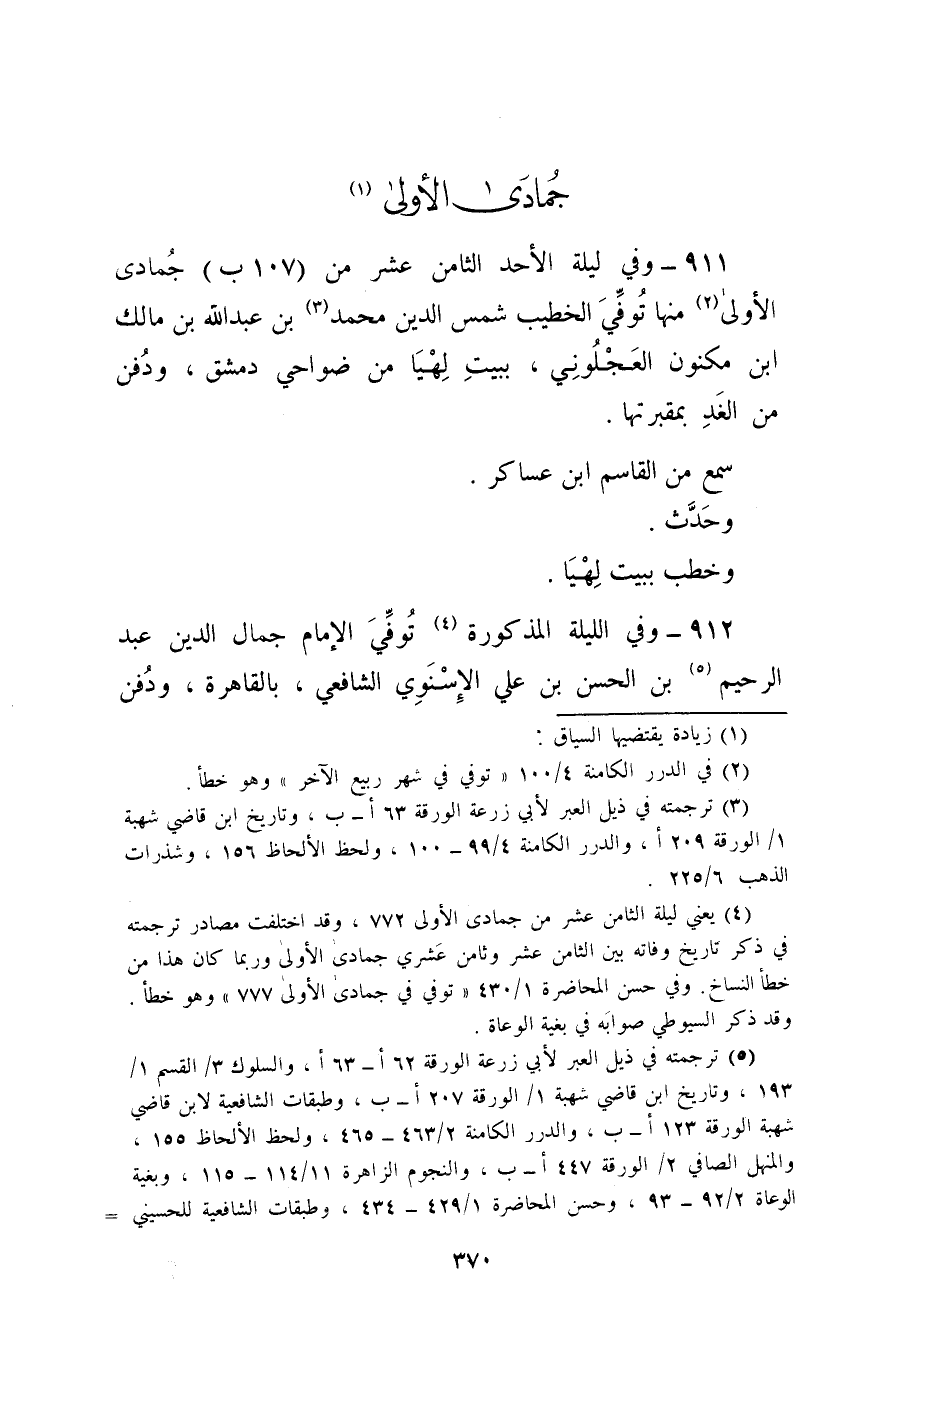 جُمادَىٰ الأولىٰ (١)
٩١١ ـ وفي ليلة الأحد الثامن عشر من (١٠٧ ب) جُمادى
الأولىٰ(٢) منها تُوفِّيَ الخطيب شمس الدين محمد(٣) بن عبدالله بن مالك
ابن مكنون العَجْلُونِي ، ببيتِ لِهْيَا من ضواحي دمشق ، ودُفن
من الغَدِ بمقبرتها .
سمع من القاسم ابن عساكر .
وحَدَّث .
وخطب ببيت لِهْيَا .
٩١٢ ـ وفي الليلة المذكورة (٤) تُوفِّيَ الإمام جمال الدين عبد
الرحيم (٥) بن الحسن بن علي الإِسْنَوِي الشافعي ، بالقاهرة ، ودُفن
(١) زيادة يقتضيها السياق :
(٢) في الدرر الكامنة ١٠٠/٤ « توفي في شهر ربيع الآخر » وهو خطأ .
(٣) ترجمته في ذيل العبر لأبي زرعة الورقة ٦٣ أ ـ ب ، وتاريخ ابن قاضي شهبة
١/ الورقة ٢٠٩ أ ، والدرر الكامنة ٩٩/٤ ـ ١٠٠ ، ولحظ الألحاظ ١٥٦ ، وشذرات
الذهب ٢٢٥/٦ .
(٤) يعني ليلة الثامن عشر من جمادى الأولى ٧٧٢ ، وقد اختلفت مصادر ترجمته
في ذكر تاريخ وفاته بين الثامن عشر وثامن عَشري جمادىٰ الأولىٰ وربما كان هذا من
خطأ النساخ. وفي حسن المحاضرة ٤٣٠/١ « توفي في جمادىٰ الأولىٰ ٧٧٧ » وهو خطأ .
وقد ذكر السيوطي صوابَه في بغية الوعاة .
(٥) ترجمته في ذيل العبر لأبي زرعة الورقة ٦٢ أ ـ ٦٣ أ ، والسلوك ٣/ القسم ١/
١٩٣ ، وتاريخ ابن قاضي شهبة ١/ الورقة ٢٠٧ أ ـ ب ، وطبقات الشافعية لابن قاضي
شهبة الورقة ١٢٣ أ ـ ب ، والدرر الكامنة ٤٦٣/٢ ـ ٤٦٥ ، ولحظ الألحاظ ١٥٥ ،
والمنهل الصافي ٢/ الورقة ٤٤٧ أ ـ ب ، والنجوم الزاهرة ١١٤/١١ ـ ١١٥ ، وبغية
الوعاة ٩٢/٢ ـ ٩٣ ، وحسن المحاضرة ٤٢٩/١ ـ ٤٣٤ ، وطبقات الشافعية للحسيني =
٣٧٠